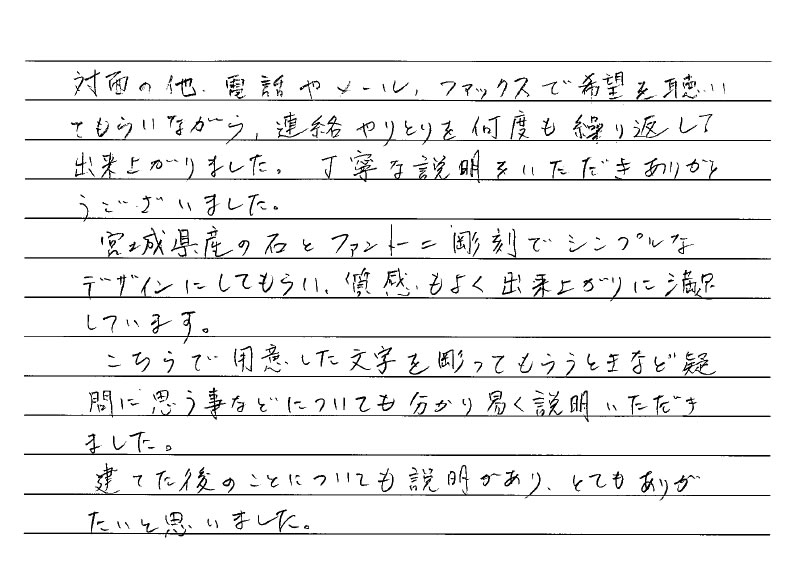 対面の他、電話やメール、ファックスで希望を聴い
てもらいながら、連絡やりとりを何度も繰り返して
出来上がりました。丁寧な説明をいただきありがと
うございました。
宮城県産の石とファントーニ彫刻でシンプルな
デザインにしてもらい、質感もよく出来上がりに満足
しています。
こちらで用意した文字を彫ってもらうときなど疑
問に思う事などについても分かり易く説明いただき
ました。
建てた後のことについても説明があり、とてもありが
たいと思いました。